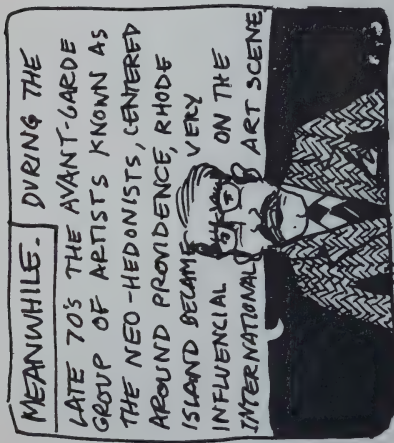 MEANWHILE. DURING THE
LATE 70'S THE AVANT-GARDE
GROUP OF ARTISTS KNOWN AS
THE NEO-HEDONISTS, CENTERED
AROUND PROVIDENCE, RHODE
ISLAND BECAME VERY
INFLUENCIAL ON THE
INTERNATIONAL ART SCENE